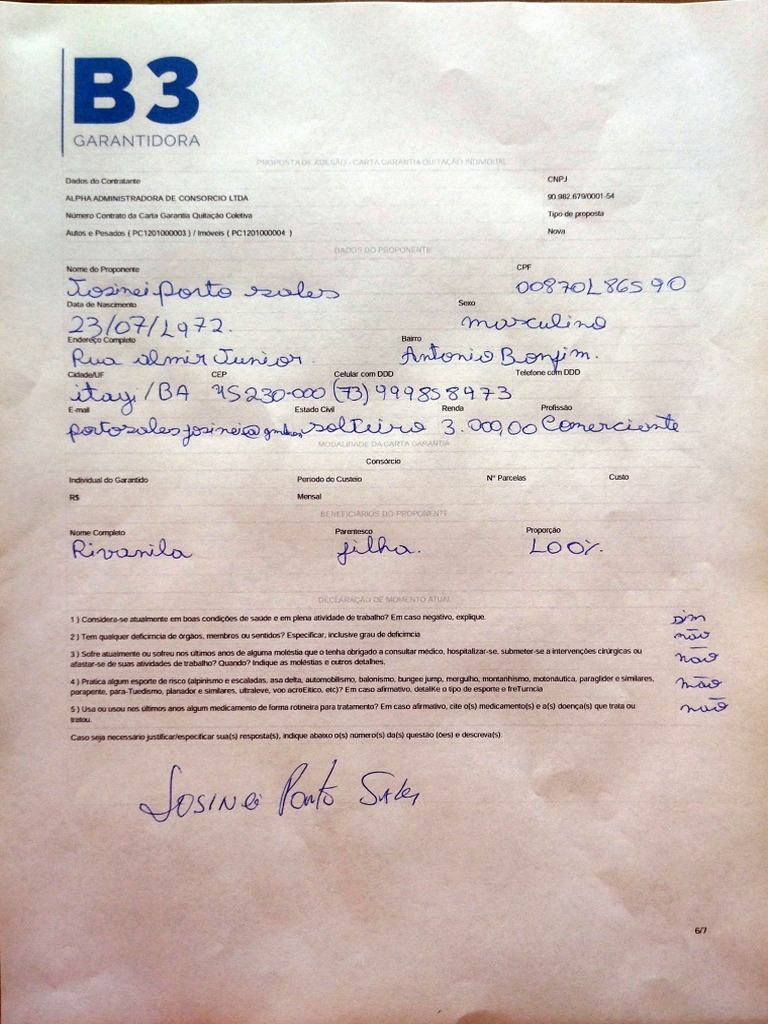 B3
GARANTIDORA
PROPOSTA DE ADESÃO - CARTA GARANTIA QUITAÇÃO INDIVIDUAL
Dados do Contratante CNPJ
ALPHA ADMINISTRADORA DE CONSORCIO LTDA 90.982.679/0001-54
Número Contrato da Carta Garantia Quitação Coletiva Tipo de proposta
Autos e Pesados ( PC1201000003 ) / Imóveis ( PC1201000004 ) Nova
DADOS DO PROPONENTE
Nome do Proponente CPF
Josinei porto sales 00870186590
Data de Nascimento Sexo
23/07/1972. masculino
Endereço Completo Bairro
Rua almir Junior. Antonio Bonfim.
Cidade/UF CEP Celular com DDD Telefone com DDD
itagi/BA 45230-000 (73) 999858973
E-mail Estado Civil Renda Profissão
portosalesjosinei@ solteiro 3.000,00 Comerciante
MODALIDADE DA CARTA GARANTIA
Consórcio
Individual do Garantido Período do Custeio N° Parcelas Custo
R$ Mensal
BENEFICIÁRIOS DO PROPONENTE
Nome Completo Parentesco Proporção
Rivanila filha. 100%.
DECLARAÇÃO DE MOMENTO ATUAL
1 ) Considera-se atualmente em boas condições de saúde e em plena atividade de trabalho? Em caso negativo, explique. sim
2 ) Tem qualquer deficimcia de órgãos, membros ou sentidos? Especificar, inclusive grau de deficimcia não
3 ) Sofre atualmente ou sofreu nos últimos anos de alguma moléstia que o tenha obrigado a consultar médico, hospitalizar-se, submeter-se a intervenções cirúrgicas ou
afastar-se de suas atividades de trabalho? Quando? Indique as moléstias e outros detalhes. não
4 ) Pratica algum esporte de risco (alpinismo e escaladas, asa delta, automobilismo, balonismo, bungee jump, mergulho, montanhismo, motonáutica, paraglider e similares,
parapente, para-Tuedismo, planador e similares, ultraleve, voo acroEitico, etc)? Em caso afirmativo, detalKe o tipo de esporte e freTurncia não
5 ) Usa ou usou nos últimos anos algum medicamento de forma rotineira para tratamento? Em caso afirmativo, cite o(s) medicamento(s) e a(s) doença(s) que trata ou
tratou. não
Caso seja necessário justificar/especificar sua(s) resposta(s), indique abaixo o(s) número(s) da(s) questão (ões) e descreva(s):
Josinei Porto Sales
6/7